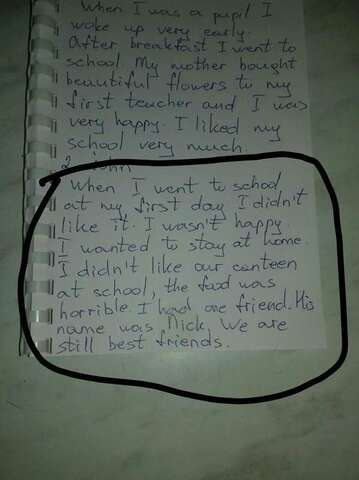 When I was a pupil I
woke up very early.
After breakfast I went to
school. My mother bought
beautiful flowers to my
first teacher and I was
very happy. I liked my
school very much.
2. John
When I went to school
at my first day I didn't
like it. I wasn't happy.
I wanted to stay at home.
I didn't like our canteen
at school, the food was
horrible. I had one friend. His
name was Nick. We are
still best friends.